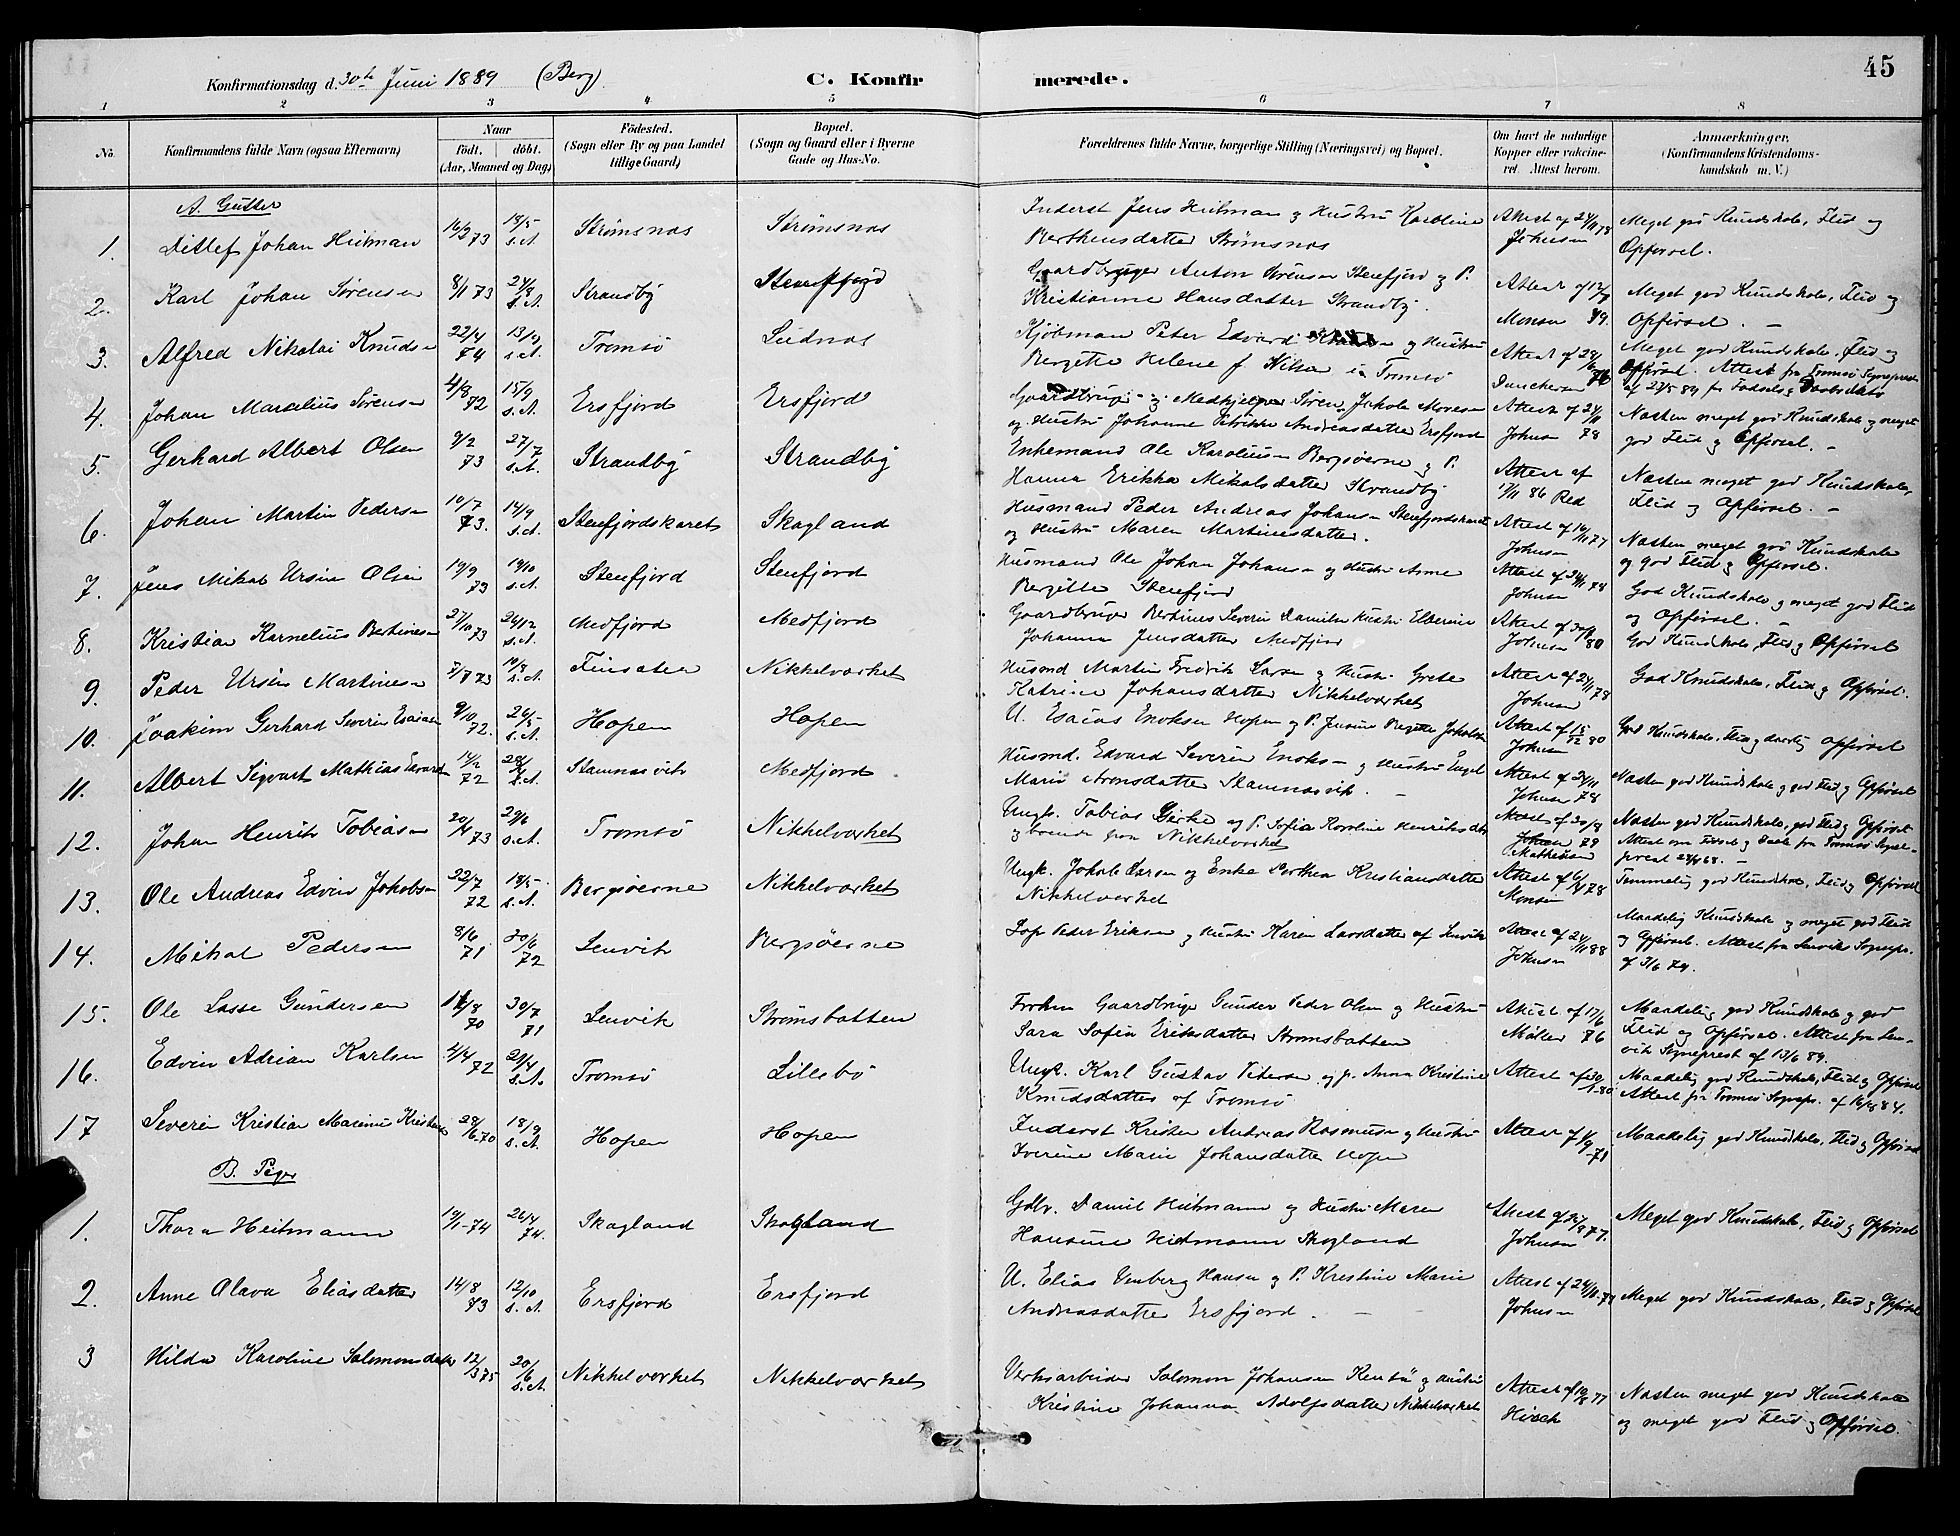 Konfirmationsdag d. 30te Juni 1889 (Berg)
C. Konfirmerede.
45
1 2 3 4 5 6 7 8
No.
Konfirmandens fulde Navn (ogsaa Efternavn)
Naar
födt. döbt.
(Aar, Maaned og Dag)
Födested.
(Sogn eller By og paa Landet
tillige Gaard)
Bopæl.
(Sogn og Gaard eller i Byerne
Gade og Hus-No.
Forældrenes fulde Navne, borgerlige Stilling (Næringsvei) og Bopæl.
Om havt de naturlige
Kopper eller vakcine-
ret. Attest herom.
Anmærkninger.
(Konfirmandens Kristendoms-
kundskab m. V.)
A. Gutter
1. Ditlef Johan Heitman 16/2 73 18/5 s.A. Strømsnæs Strømsnæs
Inderst Jens Heitman og Hustru Karoline
Bertheusdatter Strømsnæs
Attest af 24/11 78
Johnsen
Meget god Kundskab, Flid og
Opførsel.
2. Karl Johan Sørensen 8/1 73 24/8 s.A. Strandby Stenfjord
Gaardbruger Anton Sørensen Stenfjord og P.
Kristianne Hansdatter Strandby.
Monsen 89.
Meget god Kundskab, Flid og
Opførsel. –
3. Alfred Nikolai Knudsen 22/4 74 13/9 s.A. Tromsö
Kjøbmand Peter Edvard og Hustru
Bergitte Helene f. Nilsen i Tromsö
Meget god Kundskab, Flid og
Opførsel. Attest fra Tromsö Sogneprest
4. Johan Marcelius Sørensen 4/9 72 15/9 s.A. Ersfjord Ersfjord
og Hustru Johanne Petrikke Andreasdatter Ersfjord
Attest af 24/11
Johnsen 78
Næsten meget god Kundskab og meget
god Flid og Opførsel. –
5. Gerhard Albert Olsen 9/2 73 27/7 s.A. Strandby Strandby
Enkemand Ole Karoliussen Bergsøerne og P.
Hanna Erikka Mikalsdatter Strandby
Attest af
17/11 86
Næsten meget god Kundskab,
Flid og Opførsel. –
6. Johan Martin Pedersen 10/7 73. 14/9 s.A. Stenfjordskaret Skagland
Husmand Peder Andreas Johansen Stenfjordskaret
og Hustru Maren Martinusdatter.
Attest af 16/11 77
Johnsen
Næsten meget god Kundskab
og god Flid og Opførsel.
7. Jens Mikal Ursin Olsen 19/9 73 19/10 s.A. Stenfjord Stenfjord
Husmand Ole Johan Johansen og Hustru Anne
Bergitte Stenfjord
Attest af 24/11 78
Johnsen
God Kundskab og meget god Flid
og Opførsel. –
8. Kristian Kornelius Bertinesen 27/10 73 26/12 s.A. Medfjord Medfjord
Gaardbruger Bertines Severin Danielsen Hustru Elberine
Johanna Jensdatter Medfjord
Johnsen 80
God Kundskab, Flid og Opførsel
9. Peder Ursin Martinesen 7/7 73 10/8 s.A. Finsæter Nikkelværket
Husmd Martin Fredrik Larsen og Hustru Grete
Katrine Johansdatter Nikkelværket
Attest af 24/11 78
Johnsen
God Kundskab, Flid og Opførsel.
10. Joakim Gerhard Severin Esaiasen 9/10 72. 26/5 s.A. Hopen Hopen
U. Esaias Enoksen Hopen og P. Jensine Bergitte Jakobsen
Attest af 15/12 80
Johnsen
God Kundskab, Flid og daarlig Opførsel
11. Albert Sigvart Mathias Edvardsen 72 s.A. Stamnæsvik Medfjord
Husmd. Edvard Severin Enoksen og Hustru Engel
Marie Aronsdatter Stamnæsvik. –
Attest af 24/11
Johnsen 78
Næsten god Kundskab og god Flid og Opførsel
12. Johan Henrik Tobiasen 20/4 73 29/6 s.A. Tromsö Nikkelværket
Ungk. Tobias Gjerke og P. Sofia Karoline Henriksdtr
boende paa Nikkelværket
Attest af 30/8
79
Mathisen
Næsten god Kundskab, god Flid og Opførsel
Attest om Fødsel og Daab fra Tromsö Sogne-
13. Ole Andreas Edvin Jakobsen 22/7 72 18/5 s.A. Bergsøerne Nikkelværket
Ungk. Jakob Larsen og Enke Berthea Kristiansdatter
Nikkelværket
Attest af 6/8 78
Monsen
Temmelig god Kundskab, Flid og Opførsel
14. Mikal Pedersen 8/6 71 30/6 72 Lenvik Bergsøerne
Peder Eriksen og Hustru Karen Larsdatter af Lenvik
Attest af 24/11 88
Johnsen
Maadelig Kundskab og meget god Flid
og Opførsel. Attest fra Lenviks Sognepr.
af 3/6 79.
15. Ole Lasse Gundersen /8 70 30/7 71 Lenvik Strømsbotten
Gaardbruger Gunder Peder Olsen og Hustru
Sara Sofia Eriksdatter Strømsbotten
Attest af 17/6
Müller 76
Maadelig god Kundskab og god
Flid og Opførsel. Attest fra Len-
vik Sogneprest af 13/6 89.
16. Edvin Adrian Karlsen 2/4 72 29/4 s.A. Tromsö Lillebö
Ungk. Karl Gustav Petersen og p. Anna Kristine
Knudsdatter af Tromsö
Attest af 30/1-80
Maadelig god Kundskab, Flid og Opførsel
Attest fra Tromsö Sognepr. af 16/8 84.
17 Severin Kristian Marinus Kristensen 28/6-70 18/9 s.A. Hopen Hopen
Inderst Kristen Andreas Rasmussen og Hustru
Iverine Marie Johansdatter Hopen
Attest af 1/9-71
Maadelig god Kundskab, Flid og Opførsel
B. Piger
1. Thora Heitmann 19/1-74 26/4 74. Skagland Skagland
Gdbr. Daniel Heitmann og Hustru Maren
Hansine Heitmann Skagland
Attest af 26/8 77.
Johnsen
Meget god Kundskab, Flid og Opførsel
2. Anne Olava Eliasdatter 14/8 73 12/10 s.A. Ersfjord Ersfjord
U. Elias Vinberg Hansen og P. Kristine Marie
Andreasdatter Ersfjord. –
Attest af 24/11-78
Johnsen
Meget god Kundskab, Flid og Opførsel
3 Hilda Karoline Salomonsdatter 12/3 75 20/6 s.A. Nikkelværket Nikkelværket
Verksarbeider Salomon Johansen og Hustru
Kristine Johanna Adolfsdatter Nikkelværket
Attest af 19/8 77
Hirsch
Næsten meget god Kundskab
og meget god Flid og Opførsel.